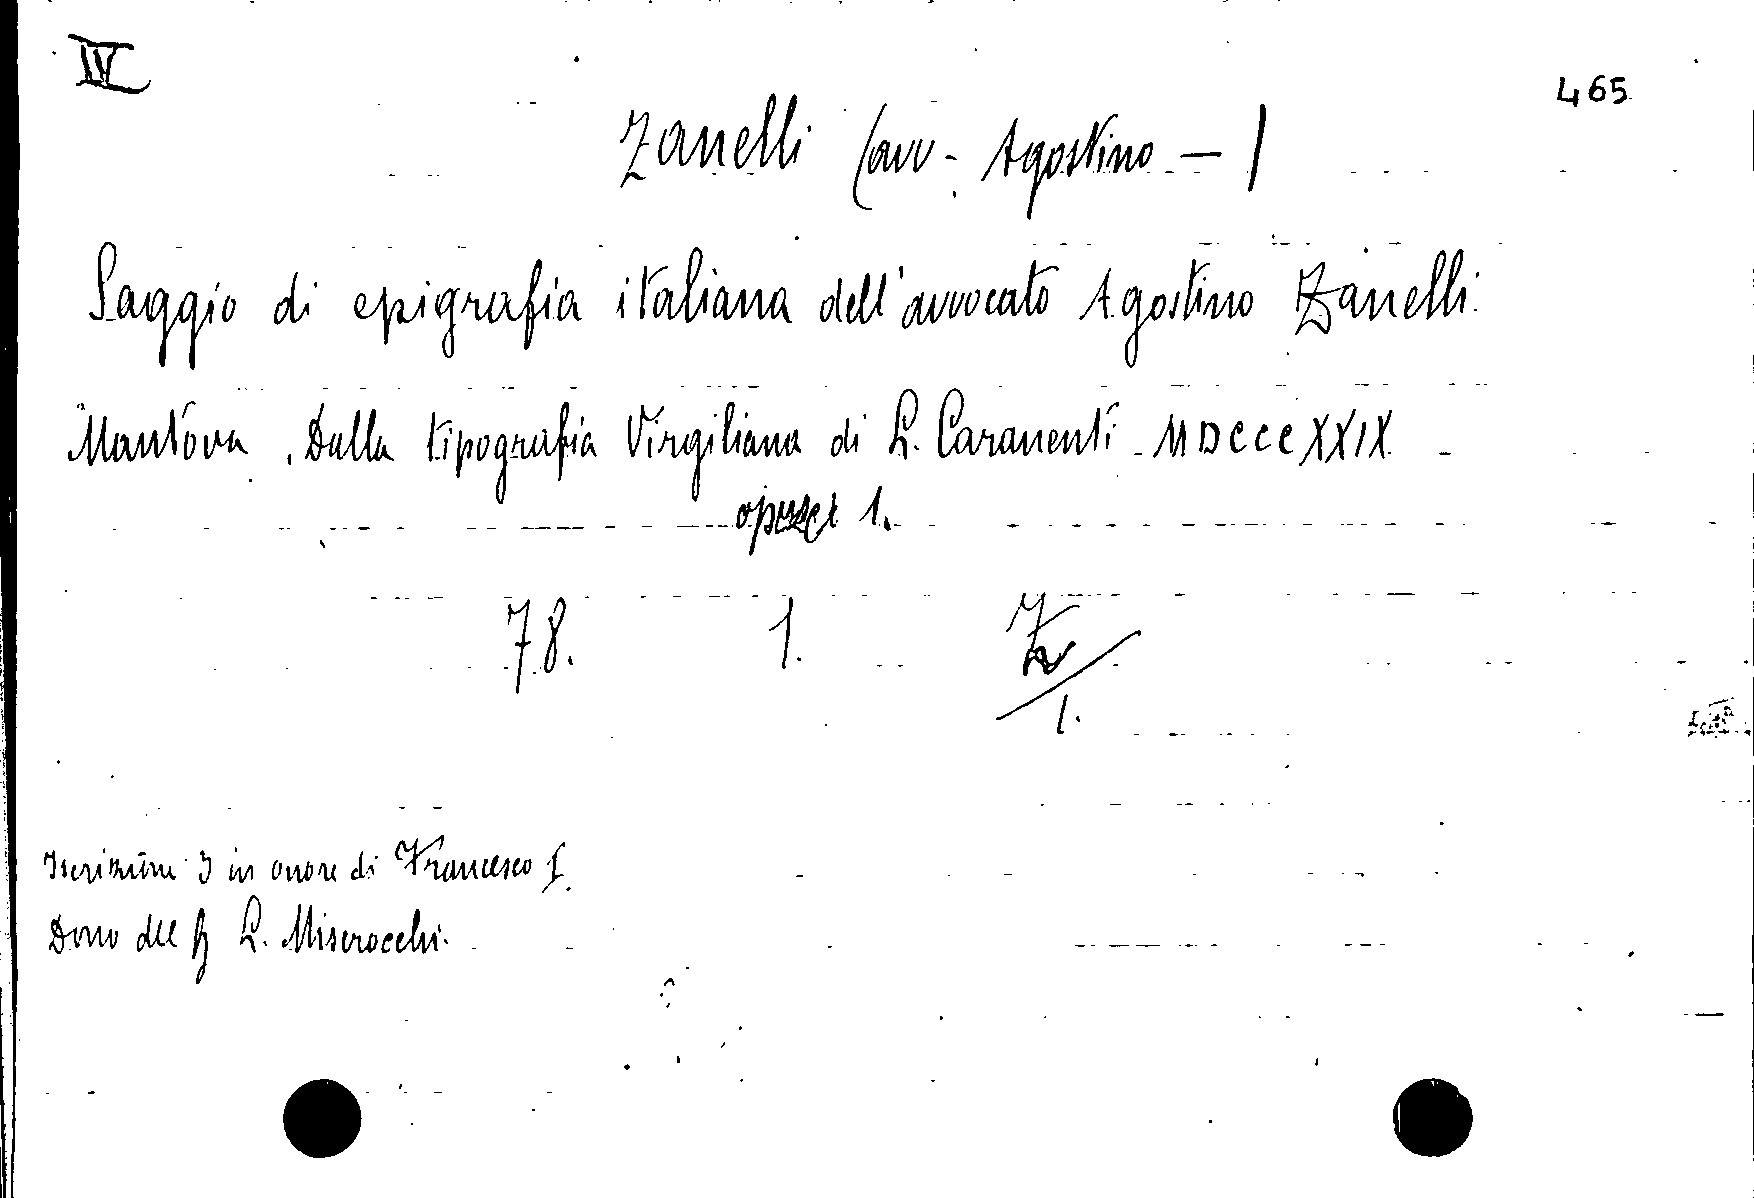 IV
465
Zanelli (avv. Agostino —)
Saggio di epigrafia italiana dell'avvocato Agostino Zanelli.
Mantova. Dalla tipografia Virgiliana di L. Caranenti MDCCCXXIX
opusc 1.
78. 1.
1.
Iscrizione 3 in onore di Francesco I.
Dono del L. Miserocchi.